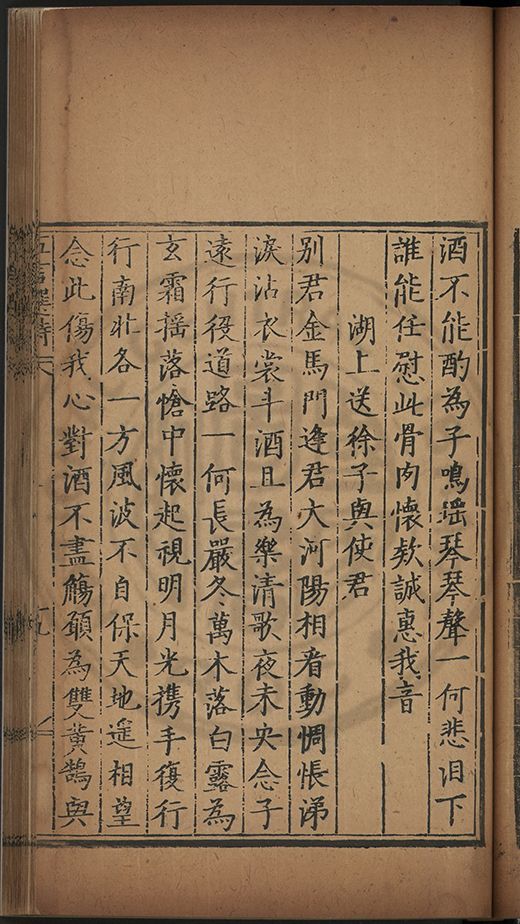 酒不能酌為子鳴瑶琴琴聲一何悲泪下
誰能任慰此骨肉懷欵誠惠我音
湖上送徐子與使君
別君金馬門逢君大河陽相看動惆悵涕
淚沾衣裳斗酒且為樂清歌夜未央念子
遠行役道路一何長嚴冬萬木落白露為
玄霜揺落愴中懷起視明月光携手復行
行南北各一方風波不自保天地遥相望
念此傷我心對酒不盡觴願為雙黄鵠與